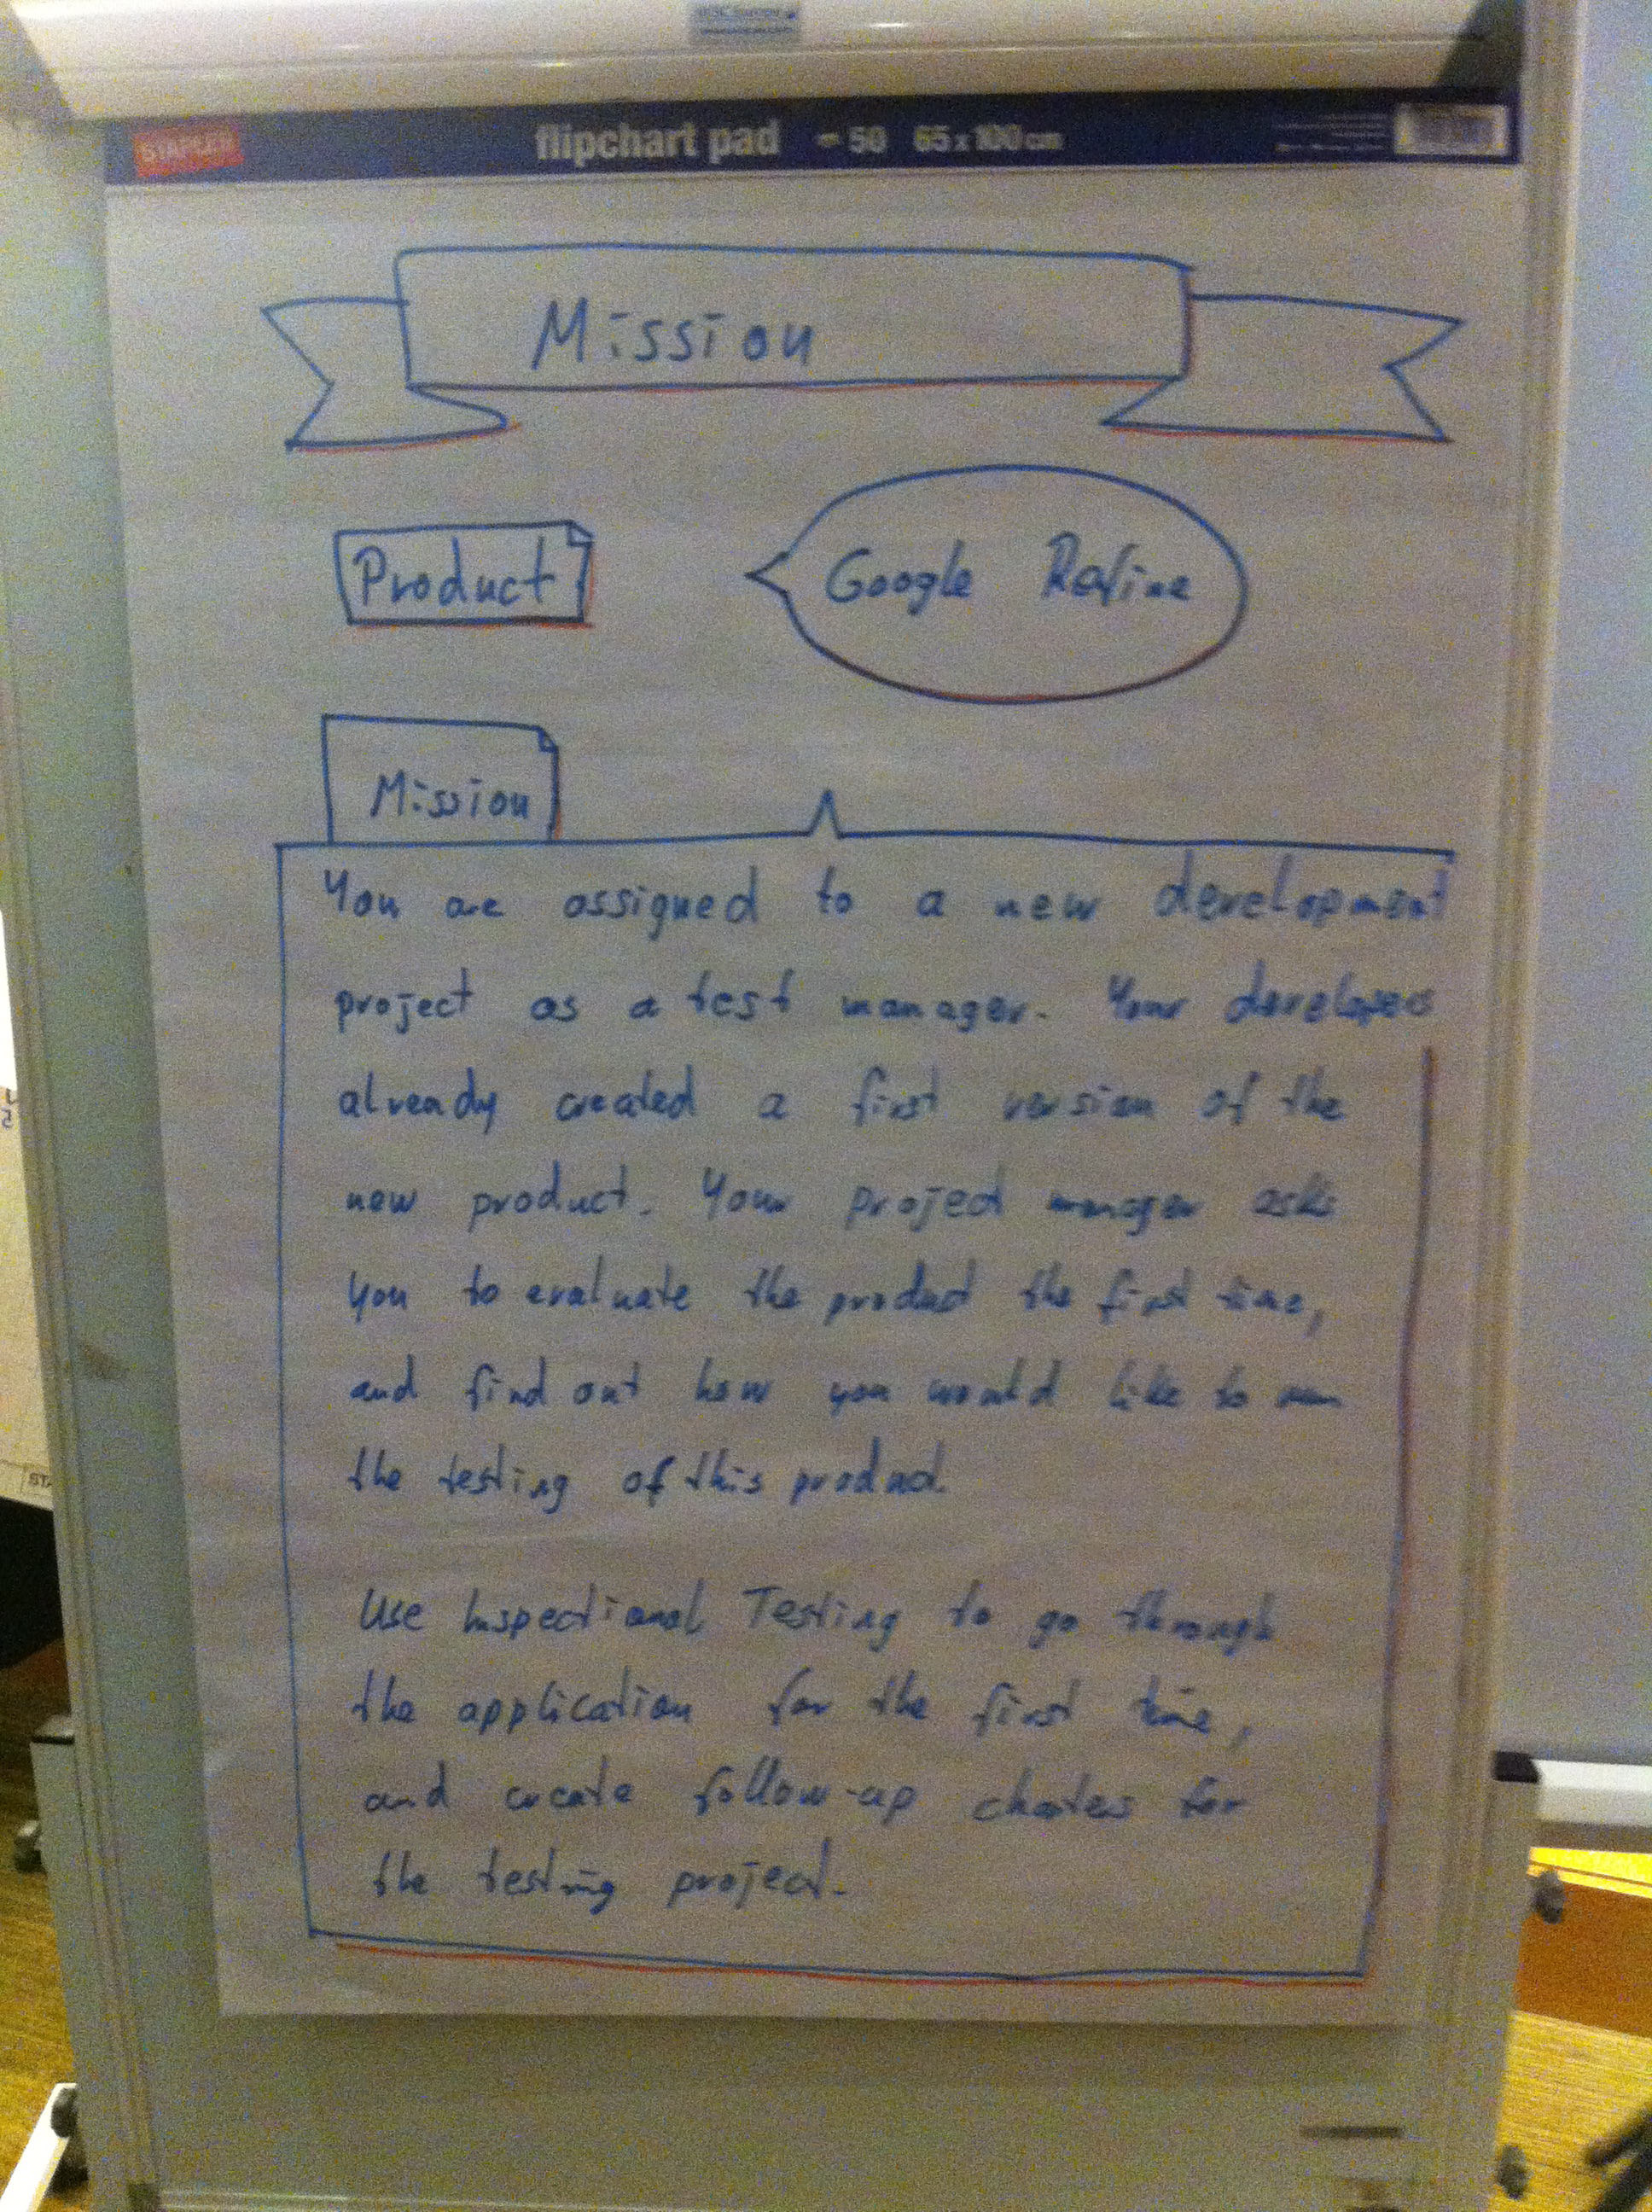 STAPLES flipchart pad = 50 65 x 100 cm
Mission
Product
Google Refine
Mission
You are assigned to a new development
project as a test manager. Your developers
already created a first version of the
new product. Your project manager asks
you to evaluate the product the first time,
and find out how you would like to run
the testing of this product.
Use Inspectional Testing to go through
the application for the first time,
and create follow-up charters for
the testing project.